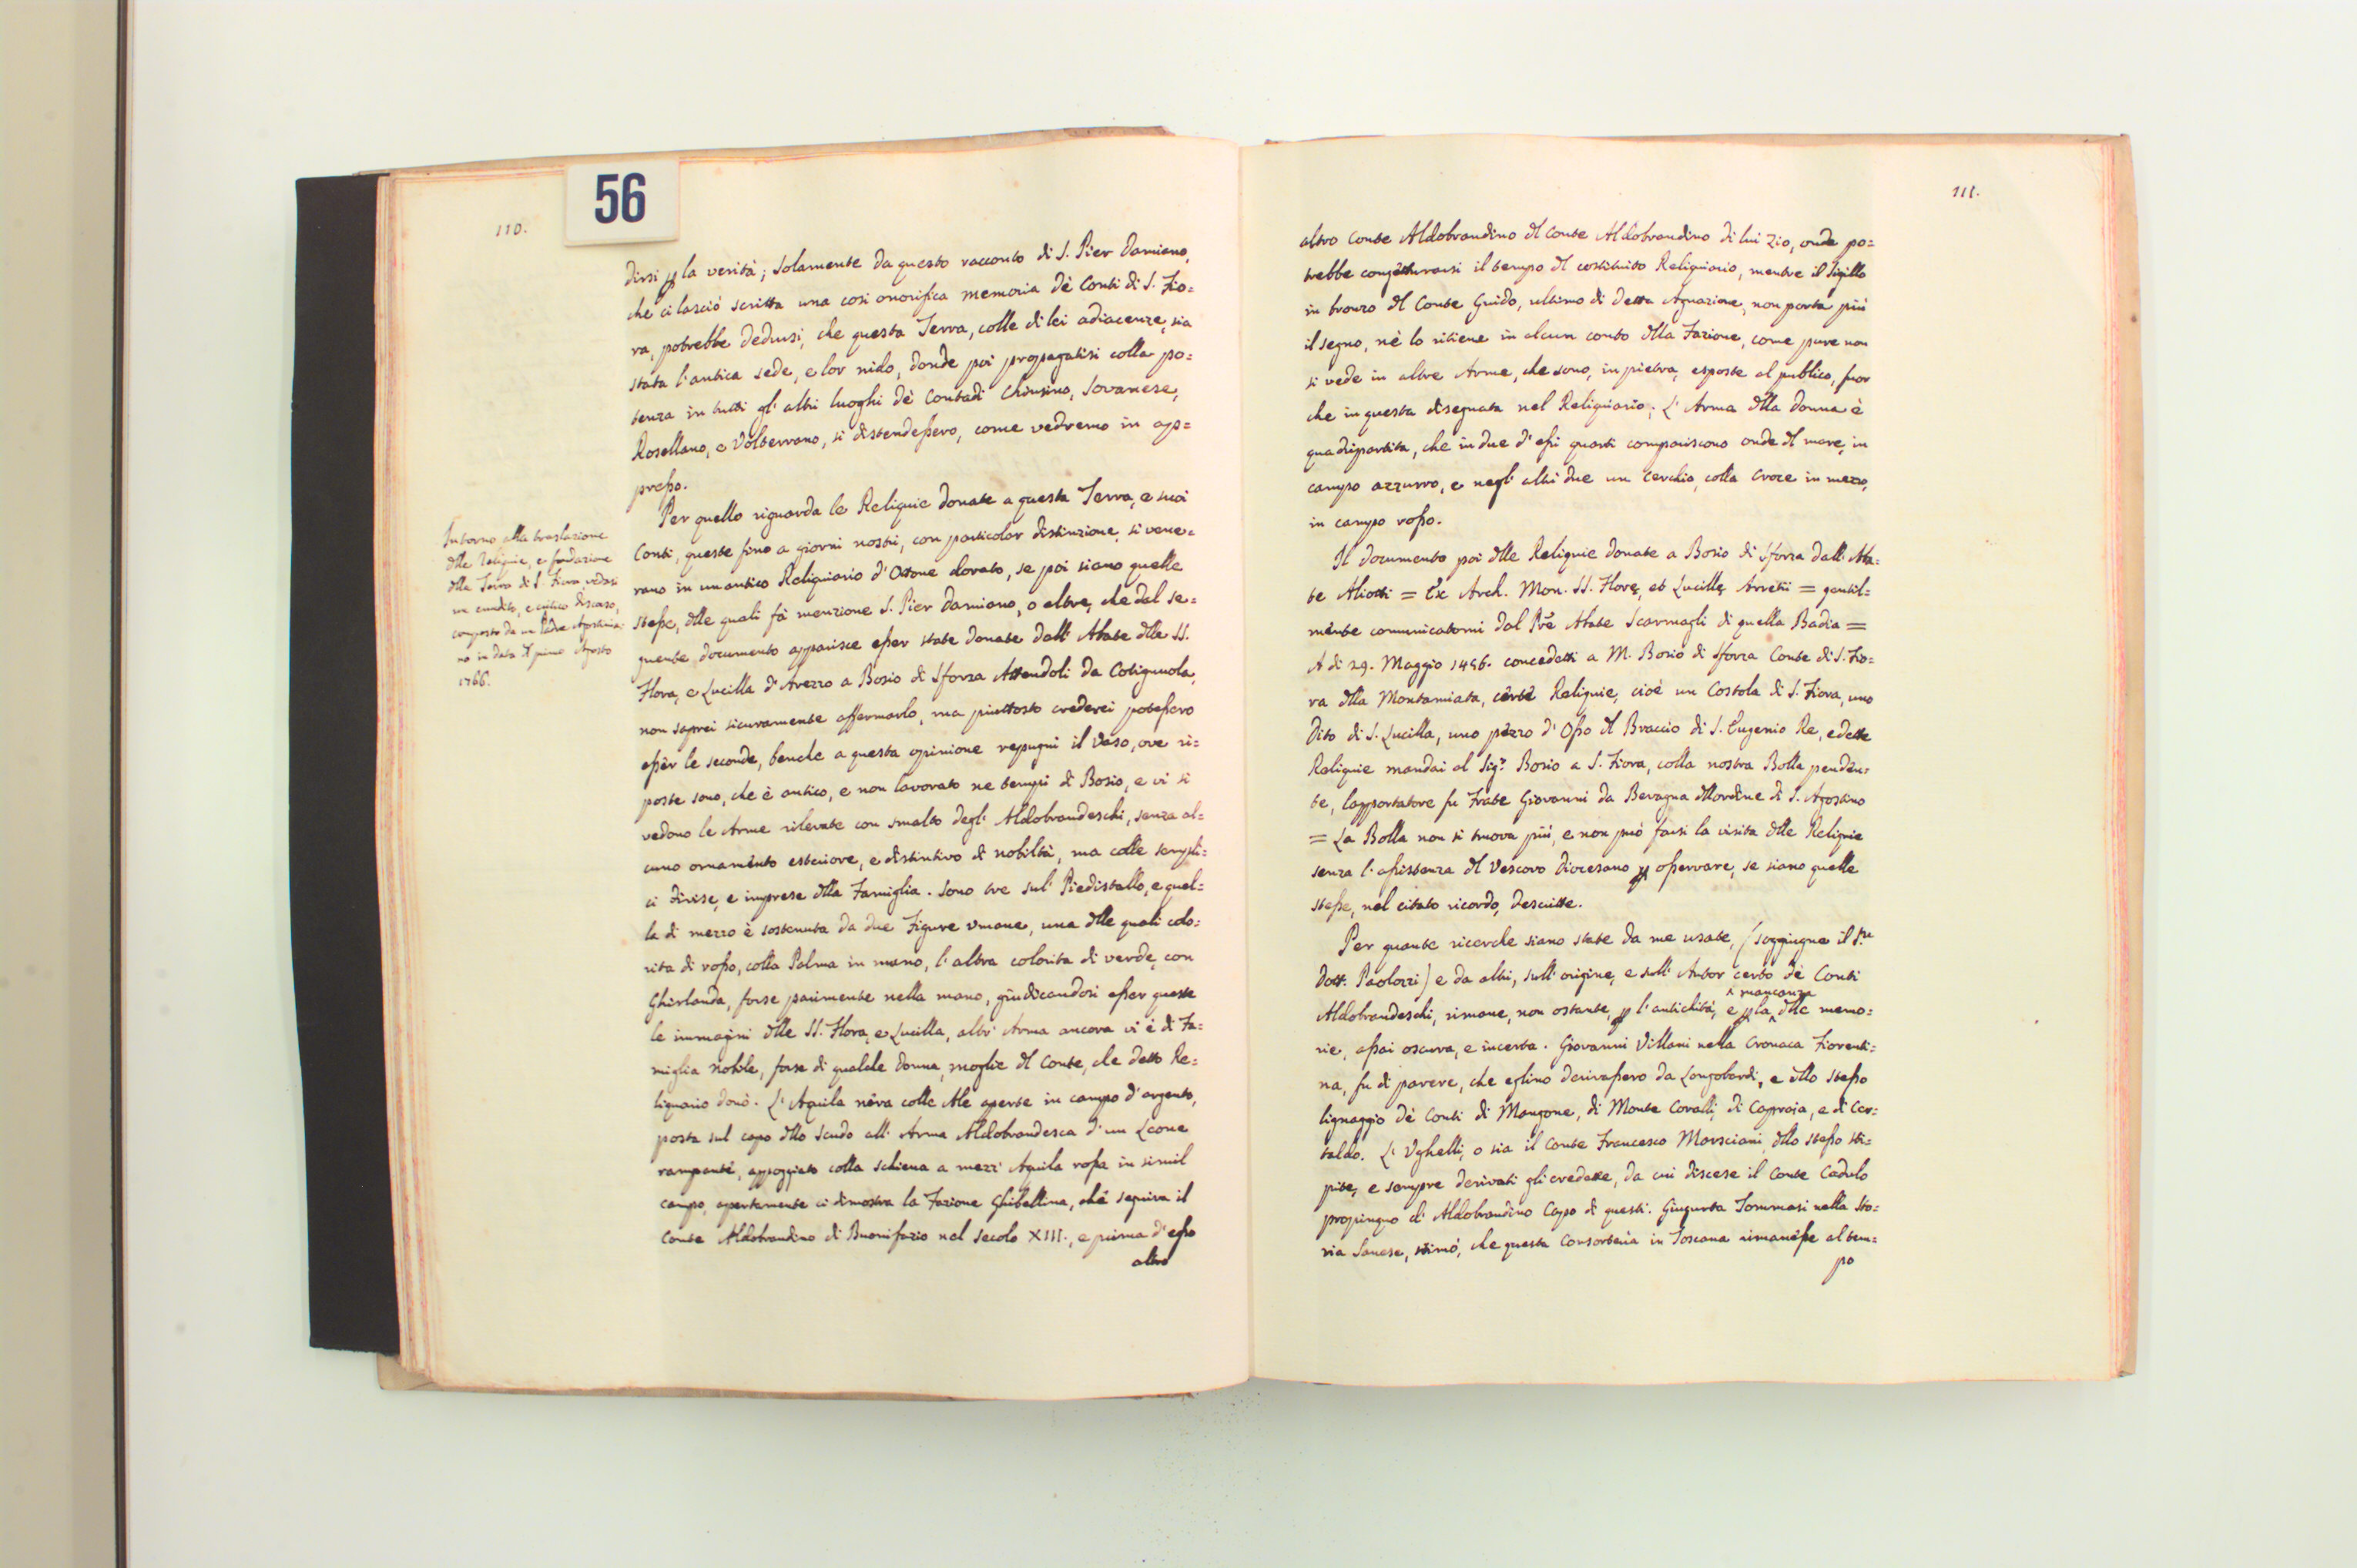 56
110.
dirsi p la verità; solamente da questo racconto di S. Pier Damiano,
che ci lasciò scritta una così onorifica memoria dè Conti di S. Fio=
ra, potrebbe dedursi, che questa Terra, colle di lei adiacenze, sia
stata l'antica sede, e lor nido, donde poi propagatisi colla po=
tenza in tutti gl'altri luoghi dè Contadi Chiusino, Sovanese,
Rosellano, e Volterrano, si distendessero, come vedremo in ap=
presso.
Per quello riguarda le Reliquie donate a questa Terra, e suoi
Conti, queste fino a giorni nostri, con particolar distinzione, si vene=
rano in un antico Reliquiario d'Ottone dorato, se poi siano quelle
stesse, dlle quali fà menzione S. Pier Damiano, o altre, che dal se=
guente documento apparisce esser state donate dall'Abate dlle SS.
Flora, e Lucilla d'Arezzo a Bosio di Sforza Attendoli da Cotignuola,
non saprei sicuramente affermarlo, ma piuttosto crederei potessero
essèr le seconde, benche a questa opinione repugni il Vaso, ove ri=
poste sono, che è antico, e non lavorato ne tempi di Bosio, e vi si
vedono le Arme rilevate con smalto degl'Aldobrandeschi, senza al=
cuno ornamento esteriore, e distintivo di nobiltà, ma colle sempli=
ci Divise, e imprese dlla Famiglia. Sono tre sul'Piedistallo, e quel=
la di mezzo è sostenuta da due Figure Umane, una dlle quali colo=
rita di rosso, colla Palma in mano, l'altra colorita di verde, con
Ghirlanda, forse parimente nella mano, giudicandosi esser queste
le immagini dlle SS. Flora, e Lucilla, altr'Arma ancora vi è di Fa=
miglia Nobile, forse di qualche Donna, moglie dl Conte, che detto Re=
liquario donò. L'Aquila nera colle Ale aperte in campo d'argento,
posta sul capo dllo Scudo all'Arma Aldobrandesca d'un Leone
rampante, appoggiato colla schiena a mezz'Aquila rossa in simil
campo, apertamente ci dimostra la Fazione Ghibellina, ché seguiva il
Conte Aldobrandino di Buonifazio nel Secolo XIII., e prima d'esso
altro
Intorno alla traslazione
dlle Reliquie, e fondazione
dlla Terra di S. Fiora, vedasi
un erudito, e critico discorso,
composto da un Padre Agostinia=
no in data dl primo Agosto
1766.
111.
altro Conte Aldobrandino dl Conte Aldobrandino di lui Zio, onde po=
trebbe congètturarsi il tempo dl costituito Reliquiario, mentre il sigillo
in bronzo dl Conte Guido, ultimo di detta Agnazione, non porta più
il segno, nè lo ritiene in alcun conto dlla Fazione, come pure non
si vede in altre Arme, che sono, in pietra, esposte al publico, fuor
che in questa disegnata nel Reliquiario. L'Arma dlla Donna è
quadripartita, che in due d'essi quarti compariscono onde dl mare, in
campo azzurro, e negl'altri due un cerchio, colla Croce in mezzo,
in campo rosso.
Il documento poi dlle Reliquie donate a Bosio di Sforza dall'Aba=
te Aliotti = Ex Arch. Mon. SS. Florę, et Lucillę Arretii = gentil=
mente comunicatomi dal Prē Abate Scarmagli di quella Badia =
A di 29. Maggio 1456. concedetti a M. Bosio di Sforza Conte di S. Fio=
ra dlla Montamiata, certe Reliquie, cioè un Costola di S. Fiora, uno
Dito di S. Lucilla, uno pezzo d'Osso dl Braccio di S. Eugenio Re, e dette
Reliquie mandai al Sigr. Bosio a S. Fiora, colla nostra Bolla penden=
te, lapportatore fu Frate Giovanni da Bevagna dllordine di S. Agostino
= La Bolla non si truova più, e non può farsi la visita dlle Reliquie
senza l'assistenza dl Vescovo Diocesano p osservare, se siano quelle
stesse, nel citato ricordo, descritte.
Per quante ricerche siano state da me usate, (soggiugne il S.re
Dott. Paolozzi) e da altri, sull'origine, e sull'Autor certo dè Conti
Aldobrandeschi, rimane, non ostante, p l'antichità, e p la ^mancanza dlle memo=
rie, assai oscura, e incerta. Giovanni Villani nella Cronaca Fiorenti=
na, fu di parere, che eglino derivassero da Longobardi, e dllo stesso
lignaggio dè Conti di Mangone, di Monte Covalli, di Capraia, e di Cer=
taldo. L'Ughelli, o sia il Conte Francesco Marsciani, dllo stesso sti=
pite, e sempre derivati gli credette, da cui discese il Conte Cadulo
propinquo d'Aldobrandino Capo di questi. Giugurta Tommasi nella Sto=
ria Sanese, stimò, che questa Consorteria in Toscana rimanesse al tem=
po